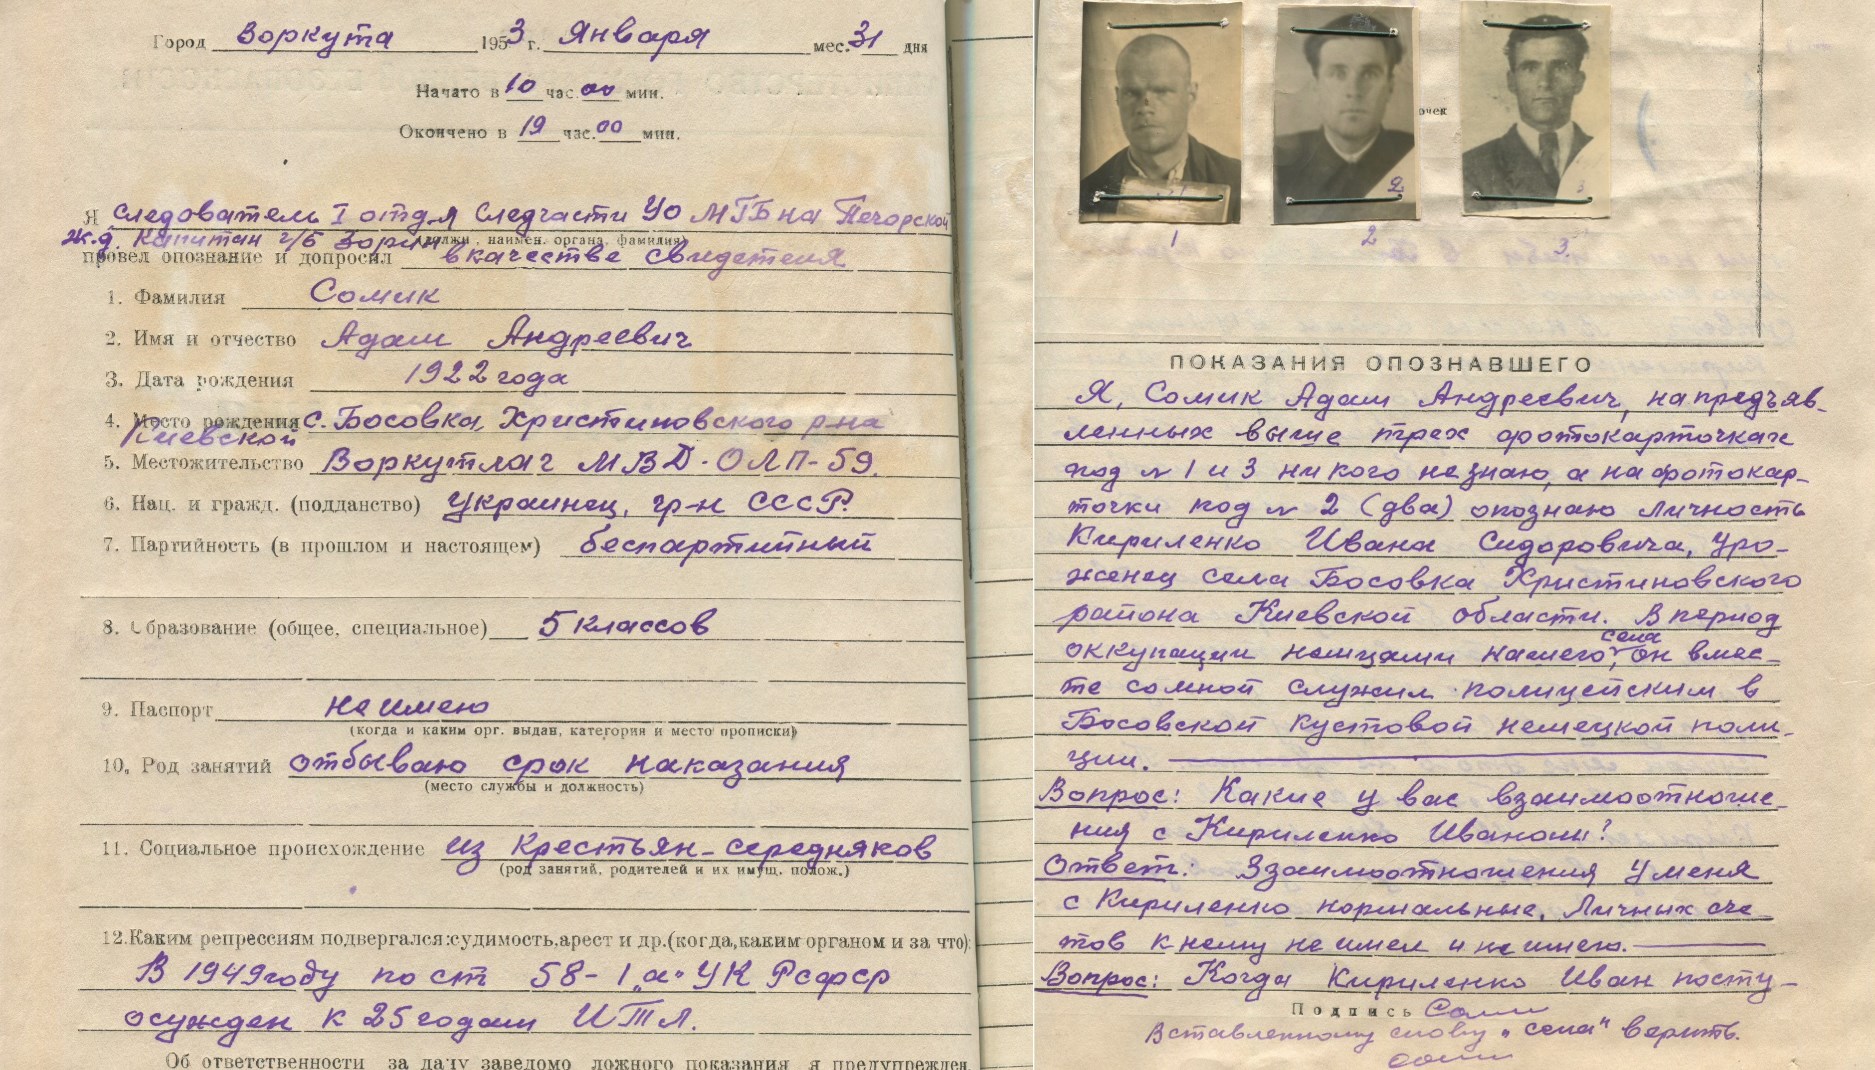 Город Воркута 1953 г. Января мес. 31 дня
Начато в 10 час. 00 мин.
Окончено в 19 час. 00 мин.
Я Следователь I отд-я Следчасти УО МГБ на Печорской
ж.д. капитан г/б Зорин
(должн., наимен. органа, фамилия)
провел опознание и допросил в качестве свидетеля
1. Фамилия Сомик
2. Имя и отчество Адам Андреевич
3. Дата рождения 1922 года
4. Место рождения с. Босовка, Христиновского р-на
Киевской
5. Местожительство Воркутлаг МВД - ОЛП-59.
6. Нац. и гражд. (подданство) украинец, гр-н СССР.
7. Партийность (в прошлом и настоящем) беспартийный
8. Образование (общее, специальное) 5 классов
9. Паспорт не имею
(когда и каким орг. выдан, категория и место прописки)
10. Род занятий отбываю срок наказания
(место службы и должность)
11. Социальное происхождение из крестьян-середняков
(род занятий, родителей и их имущ. полож.)
12. Каким репрессиям подвергался: судимость, арест и др. (когда, каким органом и за что):
В 1949 году по ст 58-1 „а" УК РСФСР
осужден к 25 годам ИТЛ.
Об ответственности за дачу заведомо ложного показания я предупрежден
очек
1 2 3.
ПОКАЗАНИЯ ОПОЗНАВШЕГО
Я, Сомик Адам Андреевич, на предъяв-
ленных выше трех фотокарточках
под № 1 и 3 никого не знаю, а на фотокар-
точки под № 2 (два) опознаю личность
Кириленко Ивана Сидоровича, уро-
женец села Босовка Христиновского
района Киевской области. В период
оккупации немцами нашего села, он вмес-
те со мной служил полицейским в
Босовской кустовой немецкой поли-
ции.
Вопрос: Какие у вас взаимоотноше-
ния с Кириленко Иваном?
Ответ: Взаимоотношения у меня
с Кириленко нормальные. Личных сче
тов к нему не имел и не имею.
Вопрос: Когда Кириленко Иван посту-
Подпись Сомик
Вставленному слову „села" верить.
Сомик